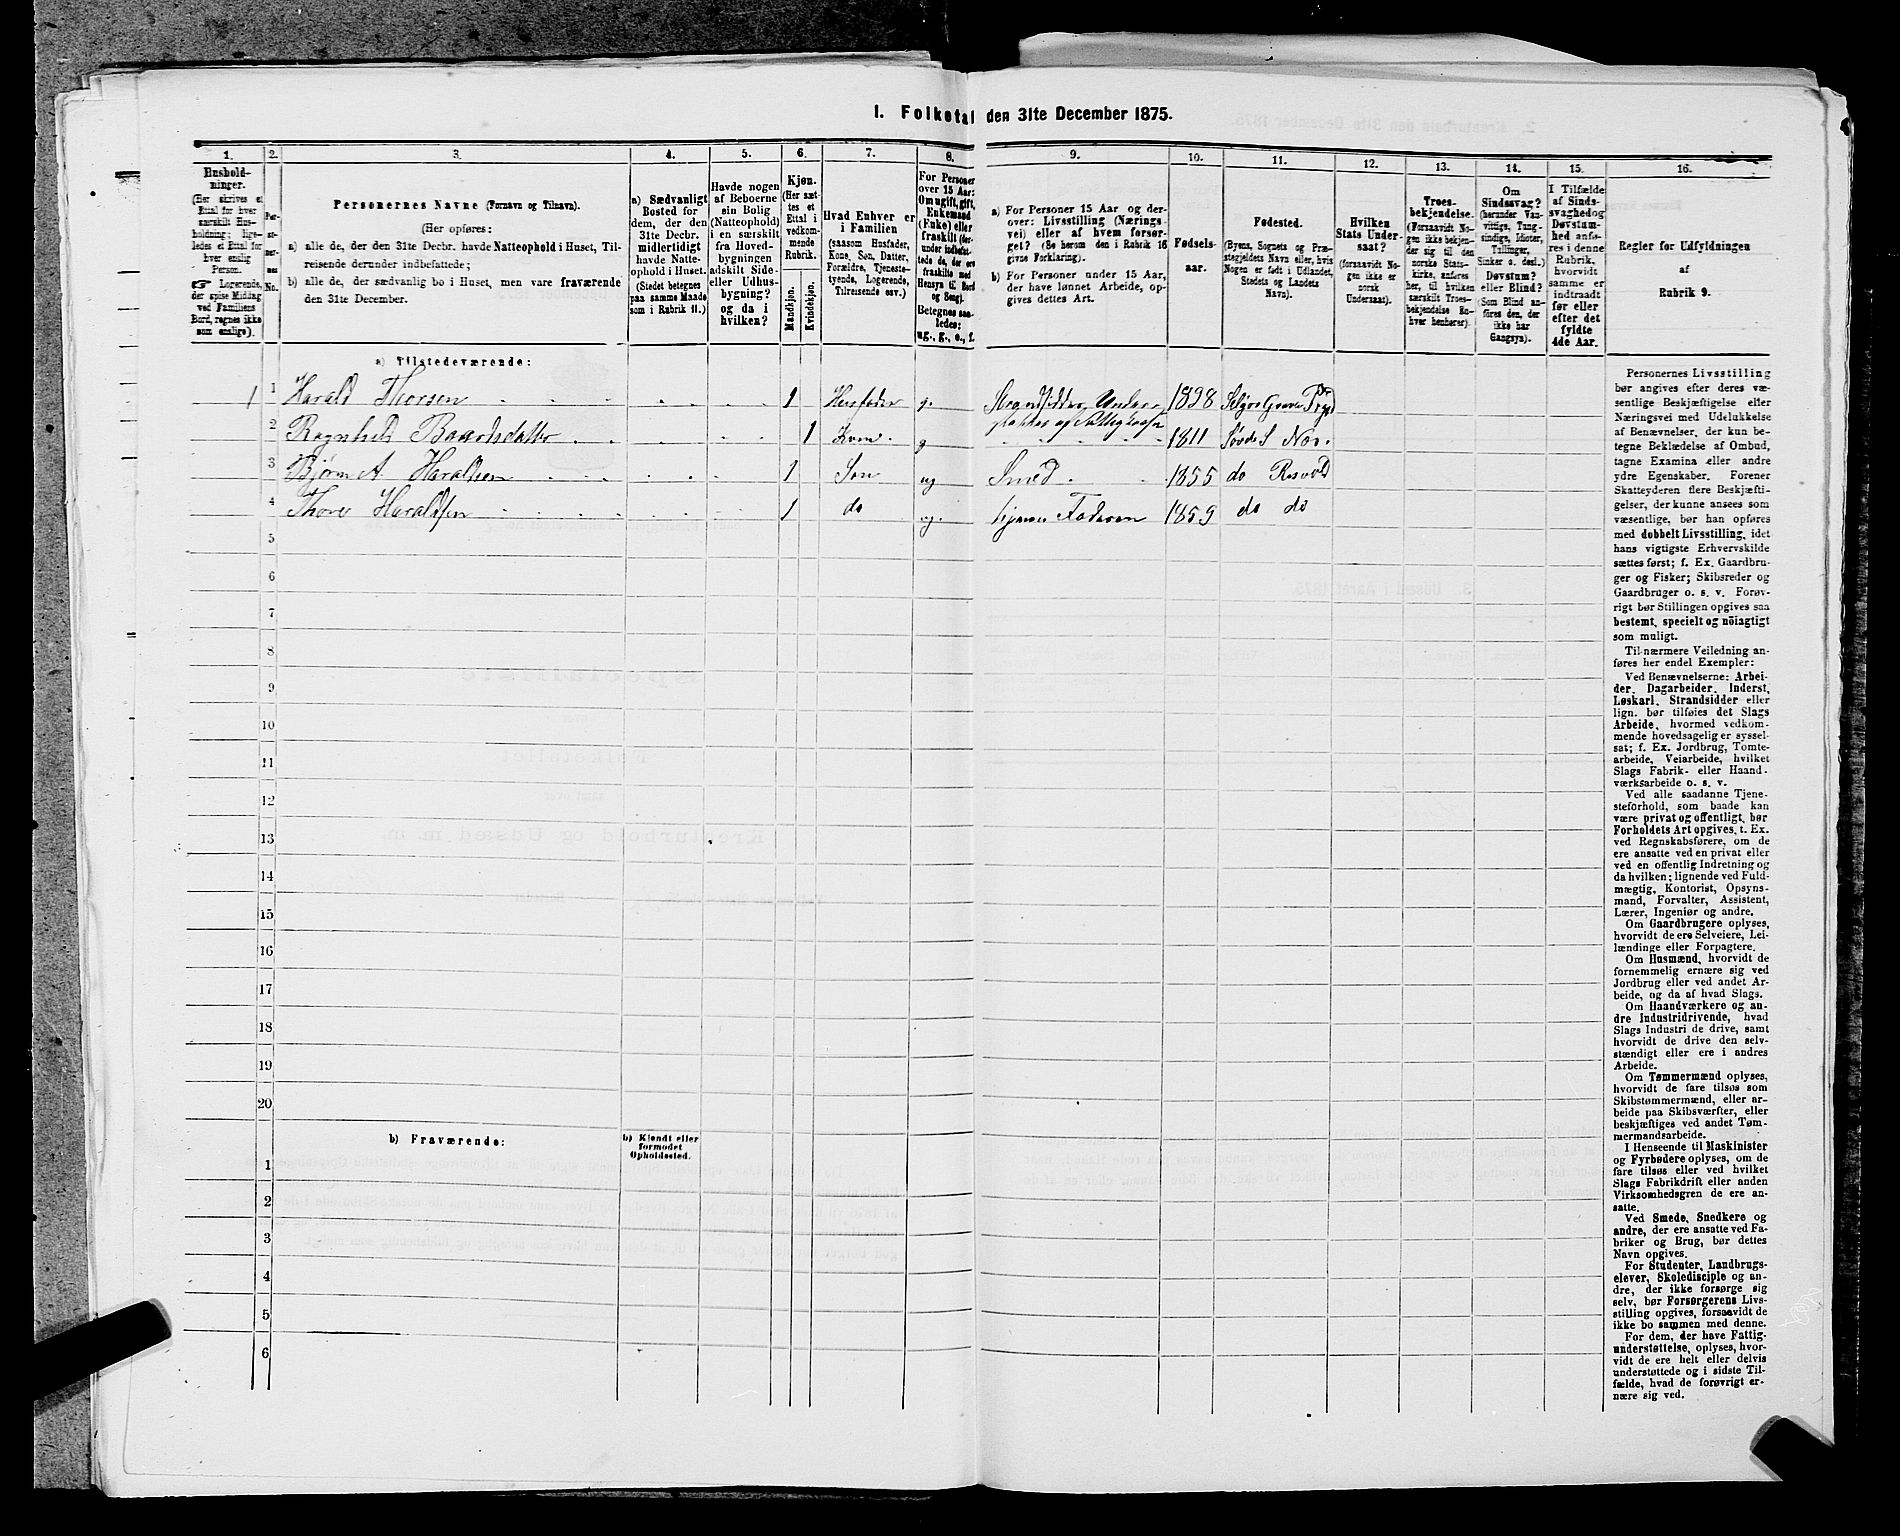 1. Folketal den 31te December 1875.
1.
2.
3.
4.
5.
6.
7.
8.
9.
10.
11.
12.
13.
14.
15.
16.
Hushold-
ninger.
(Her skrives et
Ettal for hver
særskilt Hus-
holdning; lige-
ledes et Ettal for
hver enslig
Person.
☞ Logerende,
der spise Middag
ved Familiens
Bord, regnes ikke
som enslige).
No.
Personernes Navne (Fornavn og Tilnavn).
(Her opføres:
a) alle de, der den 31te Decbr. havde Natteophold i Huset, Til-
reisende derunder indbefattede;
b) alle de, der sædvanlig bo i Huset, men vare fraværende
den 31te December.
a) Sædvanligt
Bosted for
dem, der den
31te Decbr.
midlertidigt
havde Natte-
ophold i Huset.
(Stedet betegnes
paa samme Maade
som i Rubrik 11.)
Havde nogen
af Beboerne
sin Bolig
(Natteophold)
i en særskilt
fra Hoved-
bygningen
adskilt Side-
eller Udhus-
bygning?
og da i
hvilken?
Kjøn.
(Her sæt-
tes et
Ettal i
vedkom-
mende
Rubrik.
Mandkjøn.
Kvindekjøn.
Hvad Enhver er
i Familien
(saasom Husfader,
Kone, Søn, Datter,
Forældre, Tjeneste-
tyende, Logerende,
Tilreisende osv.)
For Personer
over 15 Aar:
Om ugift, gift,
Enkemand
(Enke) eller
fraskilt (der-
under indbefat-
tede de, der ere
fraskilte med
Hensyn til Bord
og Seng).
Betegnes saa-
ledes:
ug., g., e., f.
a) For Personer 15 Aar og der-
over: Livsstilling (Nærings-
vei) eller af hvem forsør-
get? (Se herom den i Rubrik 16
givne Forklaring).
b) For Personer under 15 Aar,
der have lønnet Arbeide, op-
gives dettes Art.
Fødsels-
aar.
Fødested.
(Byens, Sognets og Præ-
stegjeldets Navn eller, hvis
Nogen er født i Udlandet,
Stedets og Landets
Navn).
Hvilken
Stats Under-
saat?
(forsaavidt No-
gen ikke er
norsk
Undersaat).
Troes-
bekjendelse.
(Forsaavidt No-
gen ikke bekjen-
der sig til den
norske Stats-
kirke, anføres
her, til hvilken
særskilt Troes-
bekjendelse En-
hver henhører).
Om
Sindssvag?
(herunder Van-
vittige, Tung-
sindige, Idioter,
Tullinger,
Sinker o. desl.).
Døvstum?
eller Blind?
(Som Blind an-
føres den, der
ikke har
Gangsyn).
I Tilfælde
af Sinds-
svaghed og
Døvstum-
hed anfø-
res i denne
Rubrik,
hvorvidt
samme er
indtraadt
før eller
efter det
fyldte
4de Aar.
Regler for Udfyldningen
af
Rubrik 9.
a) Tilstedeværende:
1 1 Harald Thorsen 1 Husfader g. Strandsidder, Under- 1828
støttes af Fattigkassen
2 Ragnhild Baardsdatter 1 Kone g 1811
3 Bjørn A Haraldsen 1 Søn ug Smed 1855 do
4 Thore Haraldsen 1 do ug. hjemme Faderen 1859 do do
5
6
7
8
9
10
11
12
13
14
15
16
17
18
19
20
b) Fraværende:
b) Kjendt eller
formodet
Opholdssted.
1
2
3
4
5
6
Personernes Livsstilling
bør angives efter deres væ-
sentlige Beskjæftigelse eller
Næringsvei med Udelukkelse
af Benævnelser, der kun be-
tegne Beklædelse af Ombud,
tagne Examina eller andre
ydre Egenskaber. Forener
Skatteyderen flere Beskjæfti-
gelser, der kunne ansees som
væsentlige, bør han opføres
med dobbelt Livsstilling, idet
hans vigtigste Erhvervskilde
sættes først; f. Ex. Gaardbru-
ger og Fisker; Skibsreder og
Gaardbruger o. s. v. Forøv-
rigt bør Stillingen opgives saa
bestemt, specielt og nöiagtigt
som muligt.
Til nærmere Veiledning an-
føres her endel Exempler:
Ved Benævnelserne: Arbei-
der, Dagarbeider, Inderst,
Løskarl, Strandsidder eller
lign. bør tilføies det Slags
Arbeide, hvormed vedkom-
mende hovedsagelig er syssel-
sat; f. Ex. Jordbrug, Tomte-
arbeide, Veiarbeide, hvilket
Slags Fabrik- eller Haand-
værksarbeide o. s. v.
Ved alle saadanne Tjene-
steforhold, som baade kan
være privat og offentligt, bør
Forholdets Art opgives, t. Ex.
ved Regnskabsførere, om de
ere ansatte ved en privat eller
ved en offentlig Indretning og
da hvilken; lignende ved Fuld-
mægtig, Kontorist, Opsyns-
mand, Forvalter, Assistent,
Lærer, Ingeniør og andre.
Om Gaardbrugere oplyses,
hvorvidt de ere Selveiere, Lei-
lændinge eller Forpagtere.
Om Husmænd, hvorvidt de
fornemmelig ernære sig ved
Jordbrug eller ved andet Ar-
beide, og da af hvad Slags.
Om Haandværkere og an-
dre Industridrivende, hvad
Slags Industri de drive, samt
hvorvidt de drive den selv-
stændigt eller ere i andres
Arbeide.
Om Tømmermænd oplyses,
hvorvidt de fare tilsøs som
Skibstømmermænd, eller ar-
beide paa Skibsværfter, eller
beskjæftiges ved andet Tøm-
mermandsarbeide.
I Henseende til Maskinister
og Fyrbødere oplyses, om de
fare tilsøs eller ved hvilket
Slags Fabrikdrift eller anden
Virksomhedsgren de ere an-
satte.
Ved Smede, Snedkere og
andre, der ere ansatte ved Fa-
briker og Brug, bør dettes
Navn opgives.
For Studenter, Landbrugs-
elever, Skoledisciple og an-
dre, der ikke forsørge sig
selv, bør Forsørgerens Livs-
stilling opgives, forsaavidt de
ikke bo sammen med denne.
For dem, der have Fattig-
understøttelse, oplyses, hvor-
vidt de ere helt eller delvis
understøttede og i sidste Til-
fælde, hvad de forøvrigt er-
nære sig ved.